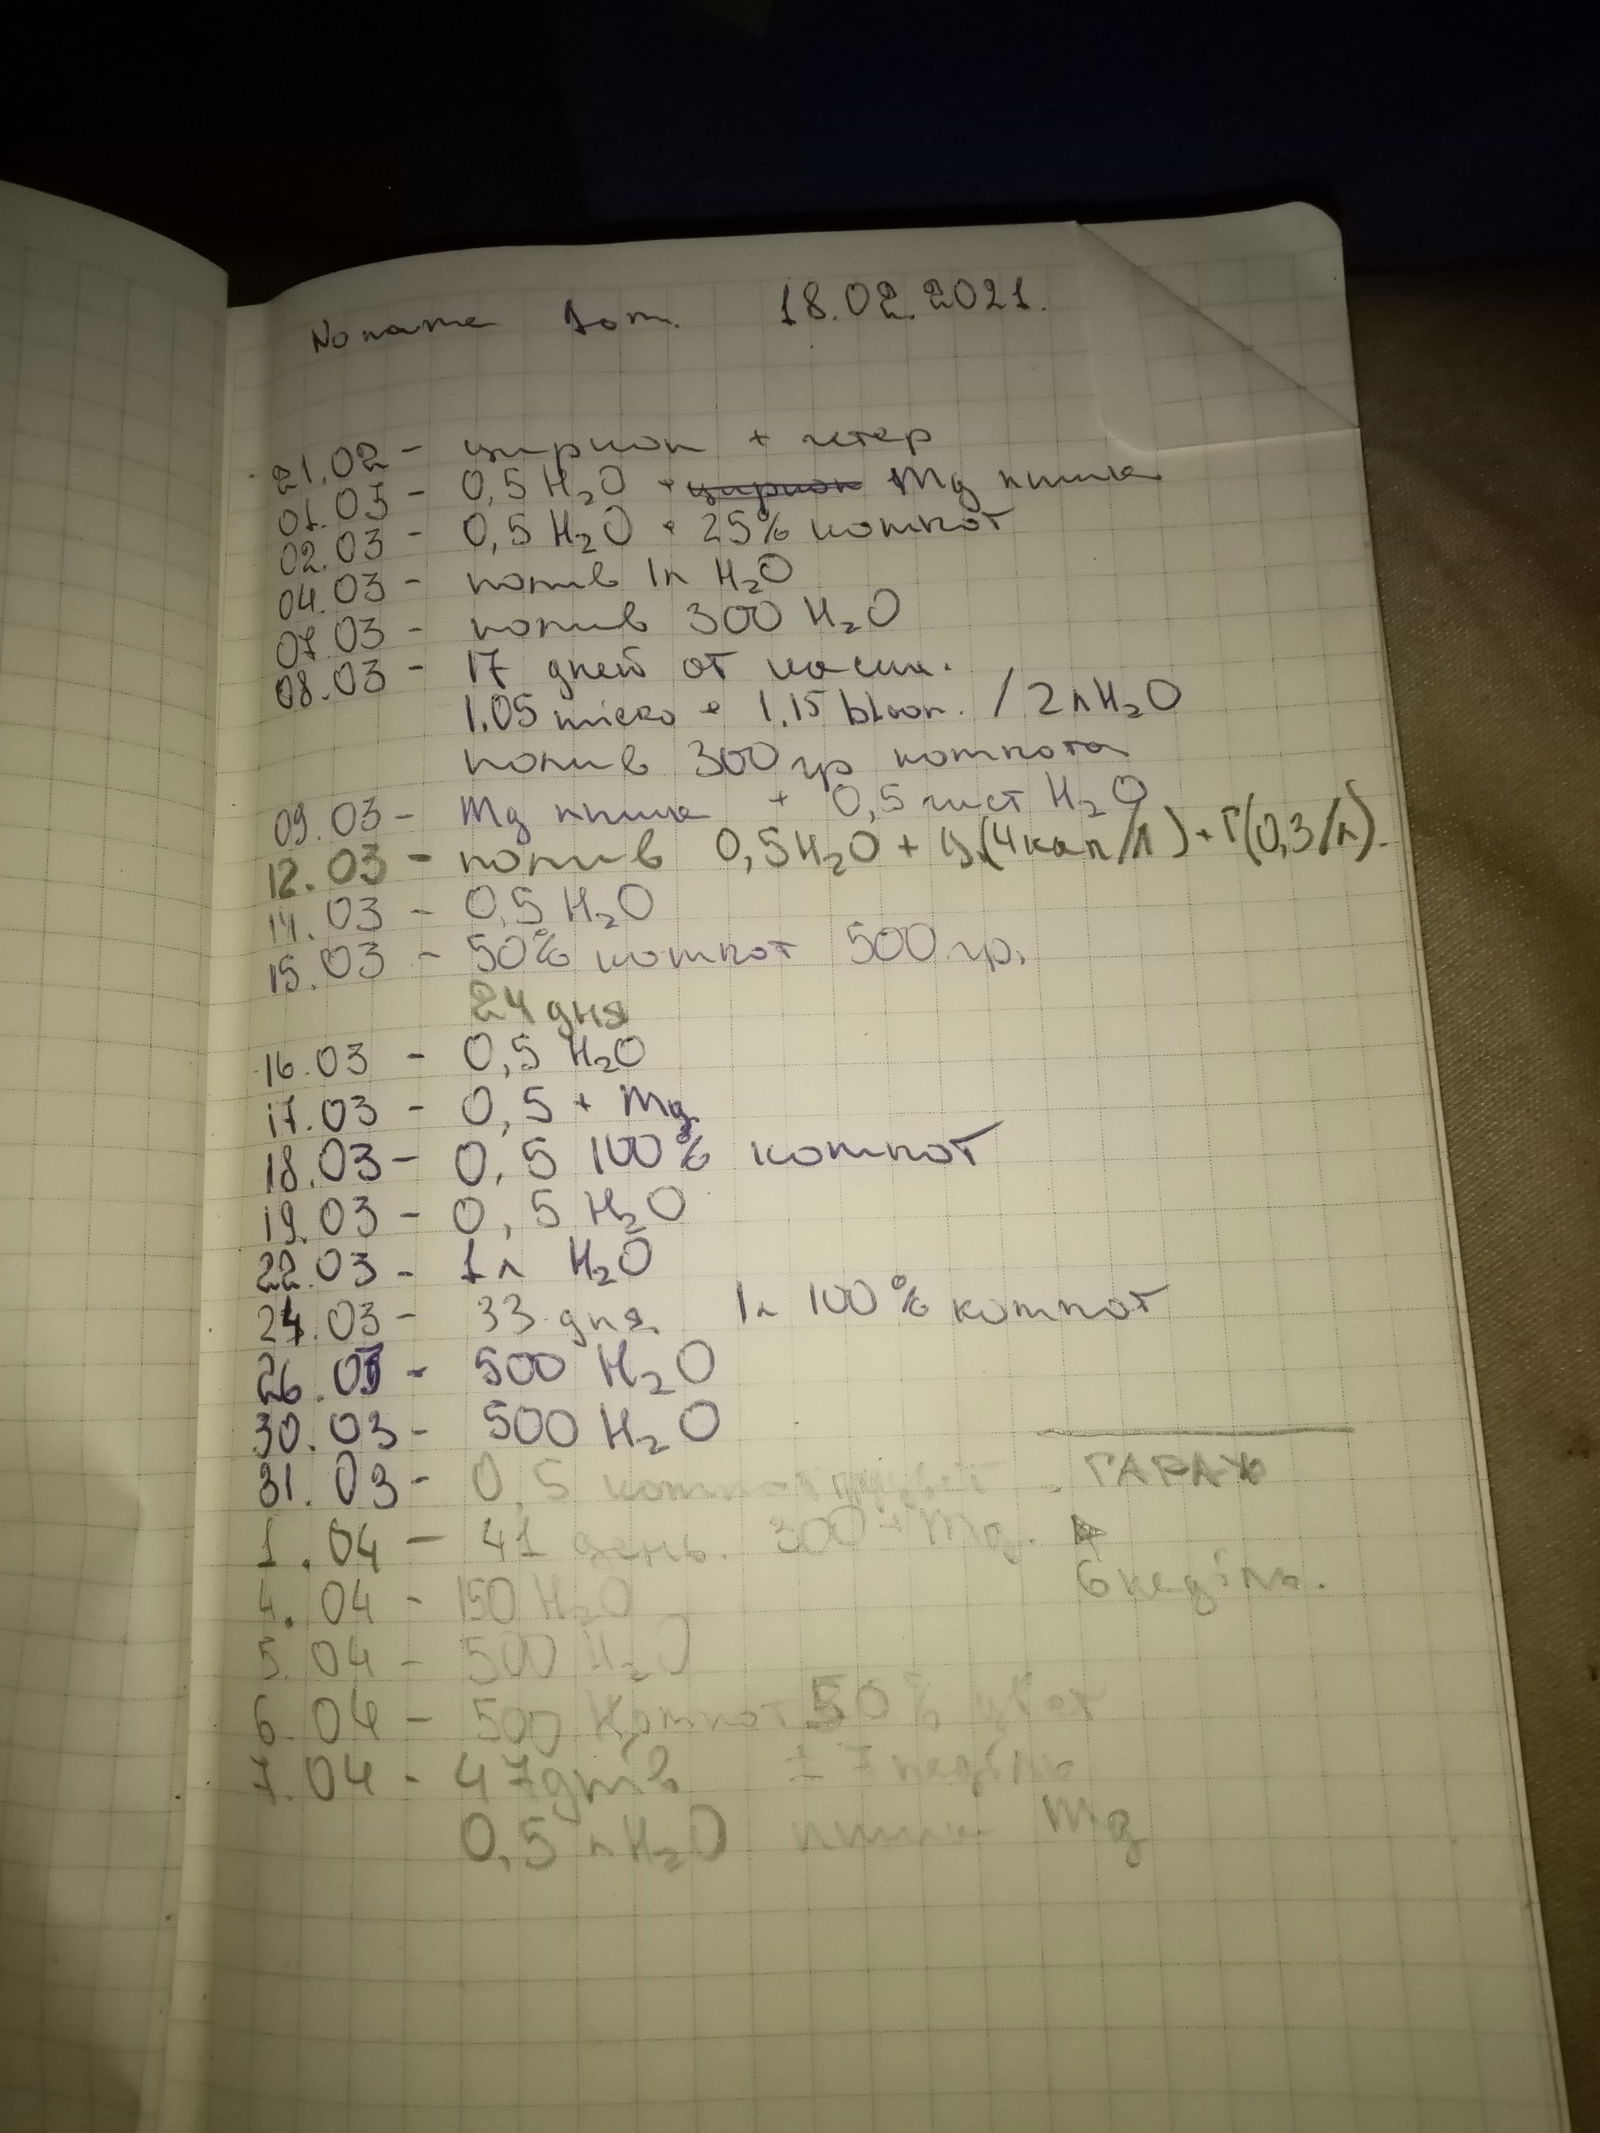 Noname 1 om. 18.02.2021.
21.02 - циркон + гетер
01.03 - 0,5 H₂O + циркон Mg пшик
02.03 - 0,5 H₂O + 25% компот
04.03 - полив 1л H₂O
07.03 - полив 300 H₂O
08.03 - 17 дней от
1.05 micro + 1.15 bloom. / 2л H₂O
полив 300 гр компота
09.03 - Mg пшик + 0,5 чист H₂O
12.03 - полив 0,5 H₂O + Ц.(4 кап/л) + Г(0,3/л).
14.03 - 0,5 H₂O
15.03 - 50% компот 500 гр.
24 дня
16.03 - 0,5 H₂O
17.03 - 0,5 + Mg
18.03 - 0,5 100% компот
19.03 - 0,5 H₂O
22.03 - 1л H₂O
24.03 - 33 дня 1л 100% компот
26.03 - 500 H₂O
30.03 - 500 H₂O
31.03 - 0,5 компот . ГАРАЖ
1.04 - 41 день. 300 + Mg.
6 неділь.
4.04 - 150 H₂O
5.04 - 500 H₂O
6.04 - 500 Компот 50% цвет
7.04 - 47 днів ± 7 неділь
0,5 л H₂O пшик Mg